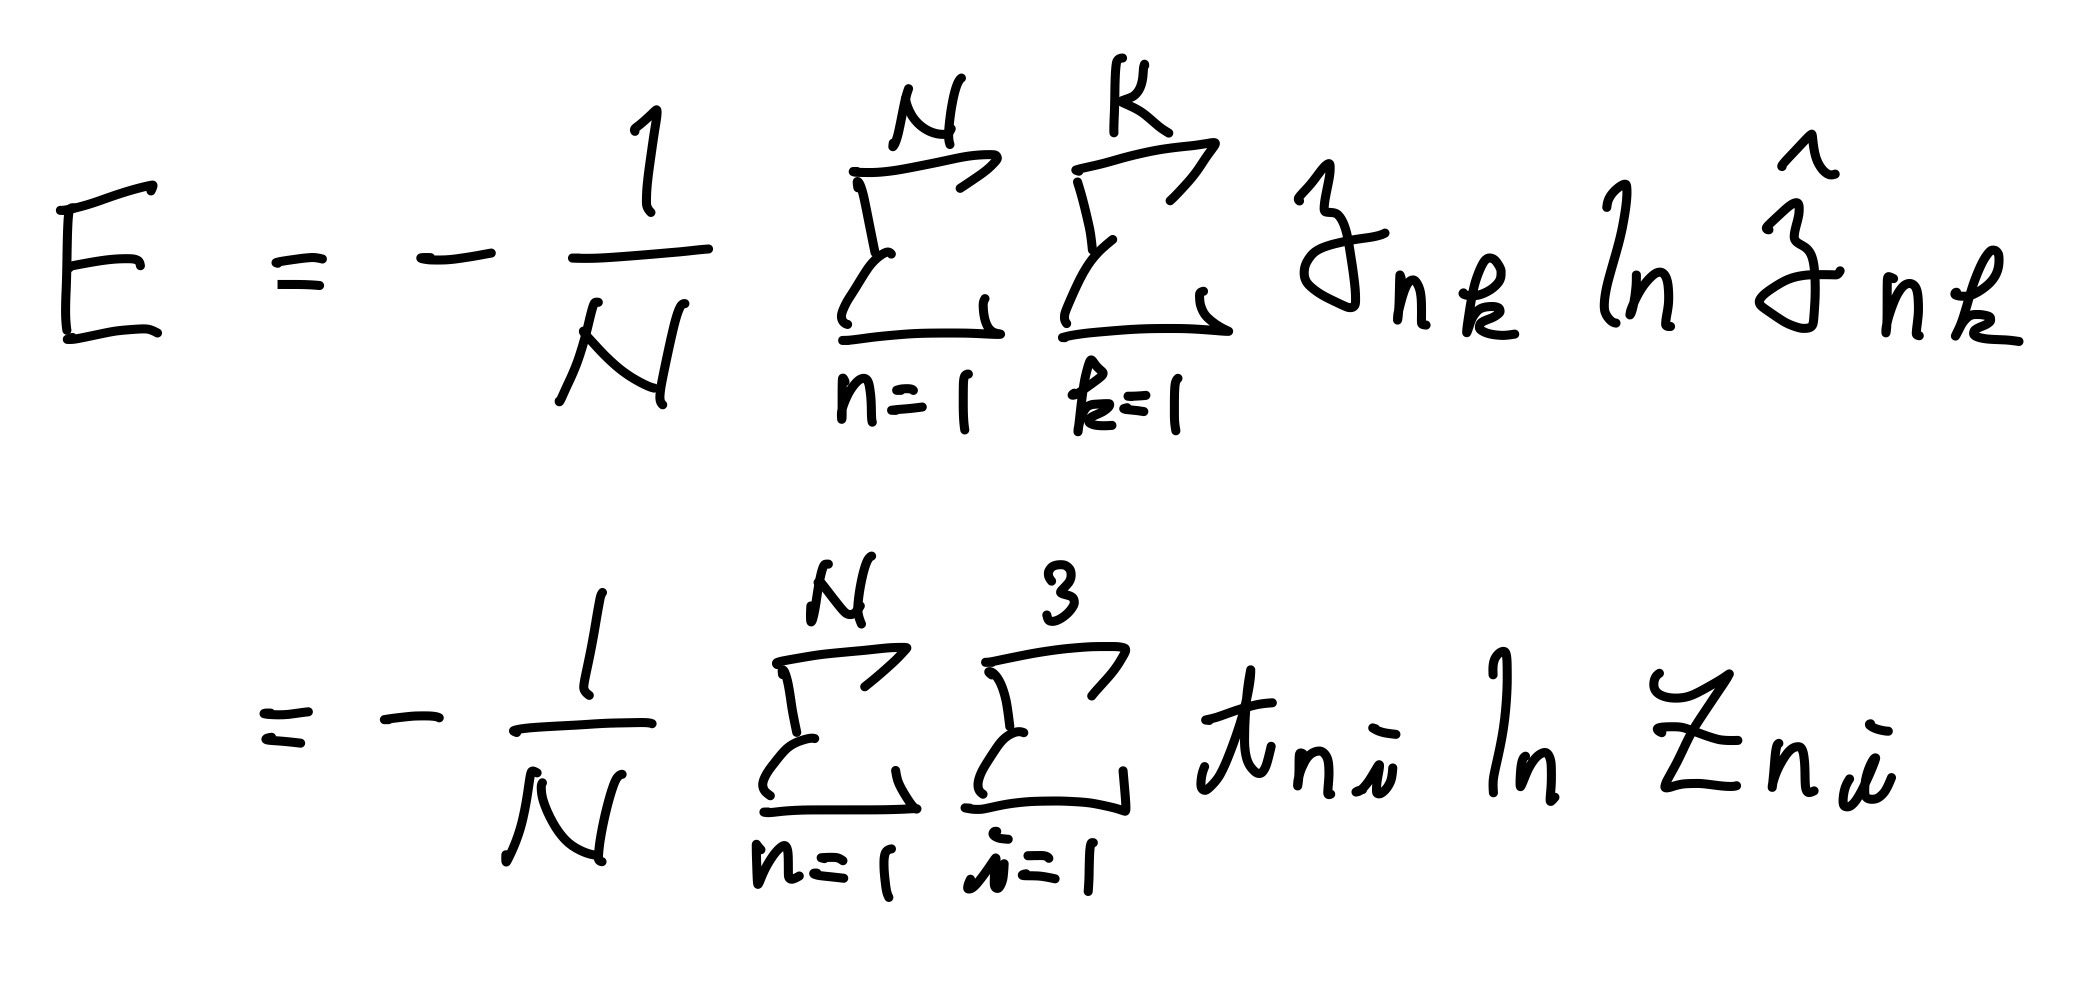 E = - \frac{1}{N} \sum_{n=1}^{N} \sum_{k=1}^{K} z_{nk} \ln \hat{z}_{nk}
= - \frac{1}{N} \sum_{n=1}^{N} \sum_{i=1}^{3} t_{ni} \ln z_{ni}